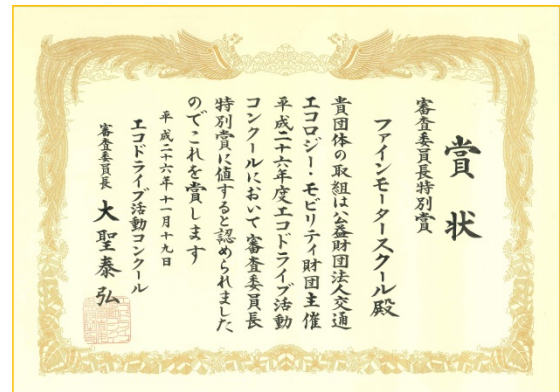 賞状
審査委員長特別賞
ファインモータースクール殿
貴団体の取組は公益財団法人交通
エコロジー・モビリティ財団主催
平成二十六年度エコドライブ活動
コンクールにおいて審査委員長
特別賞に値すると認められました
のでこれを賞します
平成二十六年十一月十九日
エコドライブ活動コンクール
審査委員長 大聖泰弘